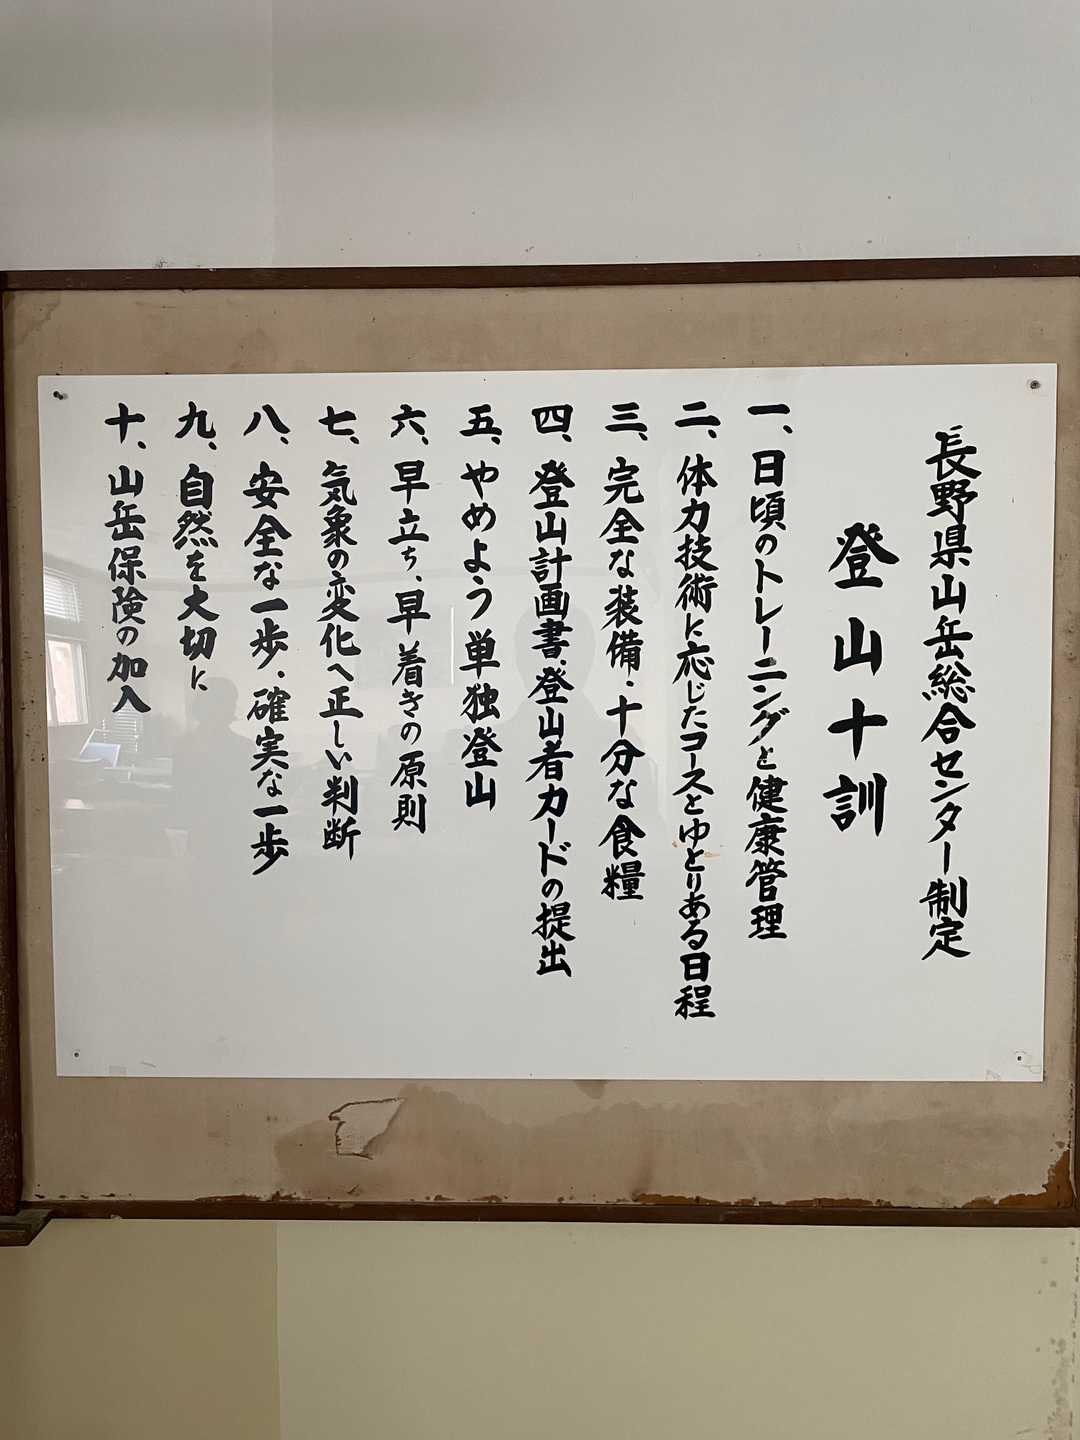 長野県山岳総合センター制定
登山十訓
一、日頃のトレーニングと健康管理
二、体力技術に応じたコースとゆとりある日程
三、完全な装備・十分な食糧
四、登山計画書、登山者カードの提出
五、やめよう単独登山
六、早立ち、早着きの原則
七、気象の変化へ正しい判断
八、安全な一歩・確実な一歩
九、自然を大切に
十、山岳保険の加入